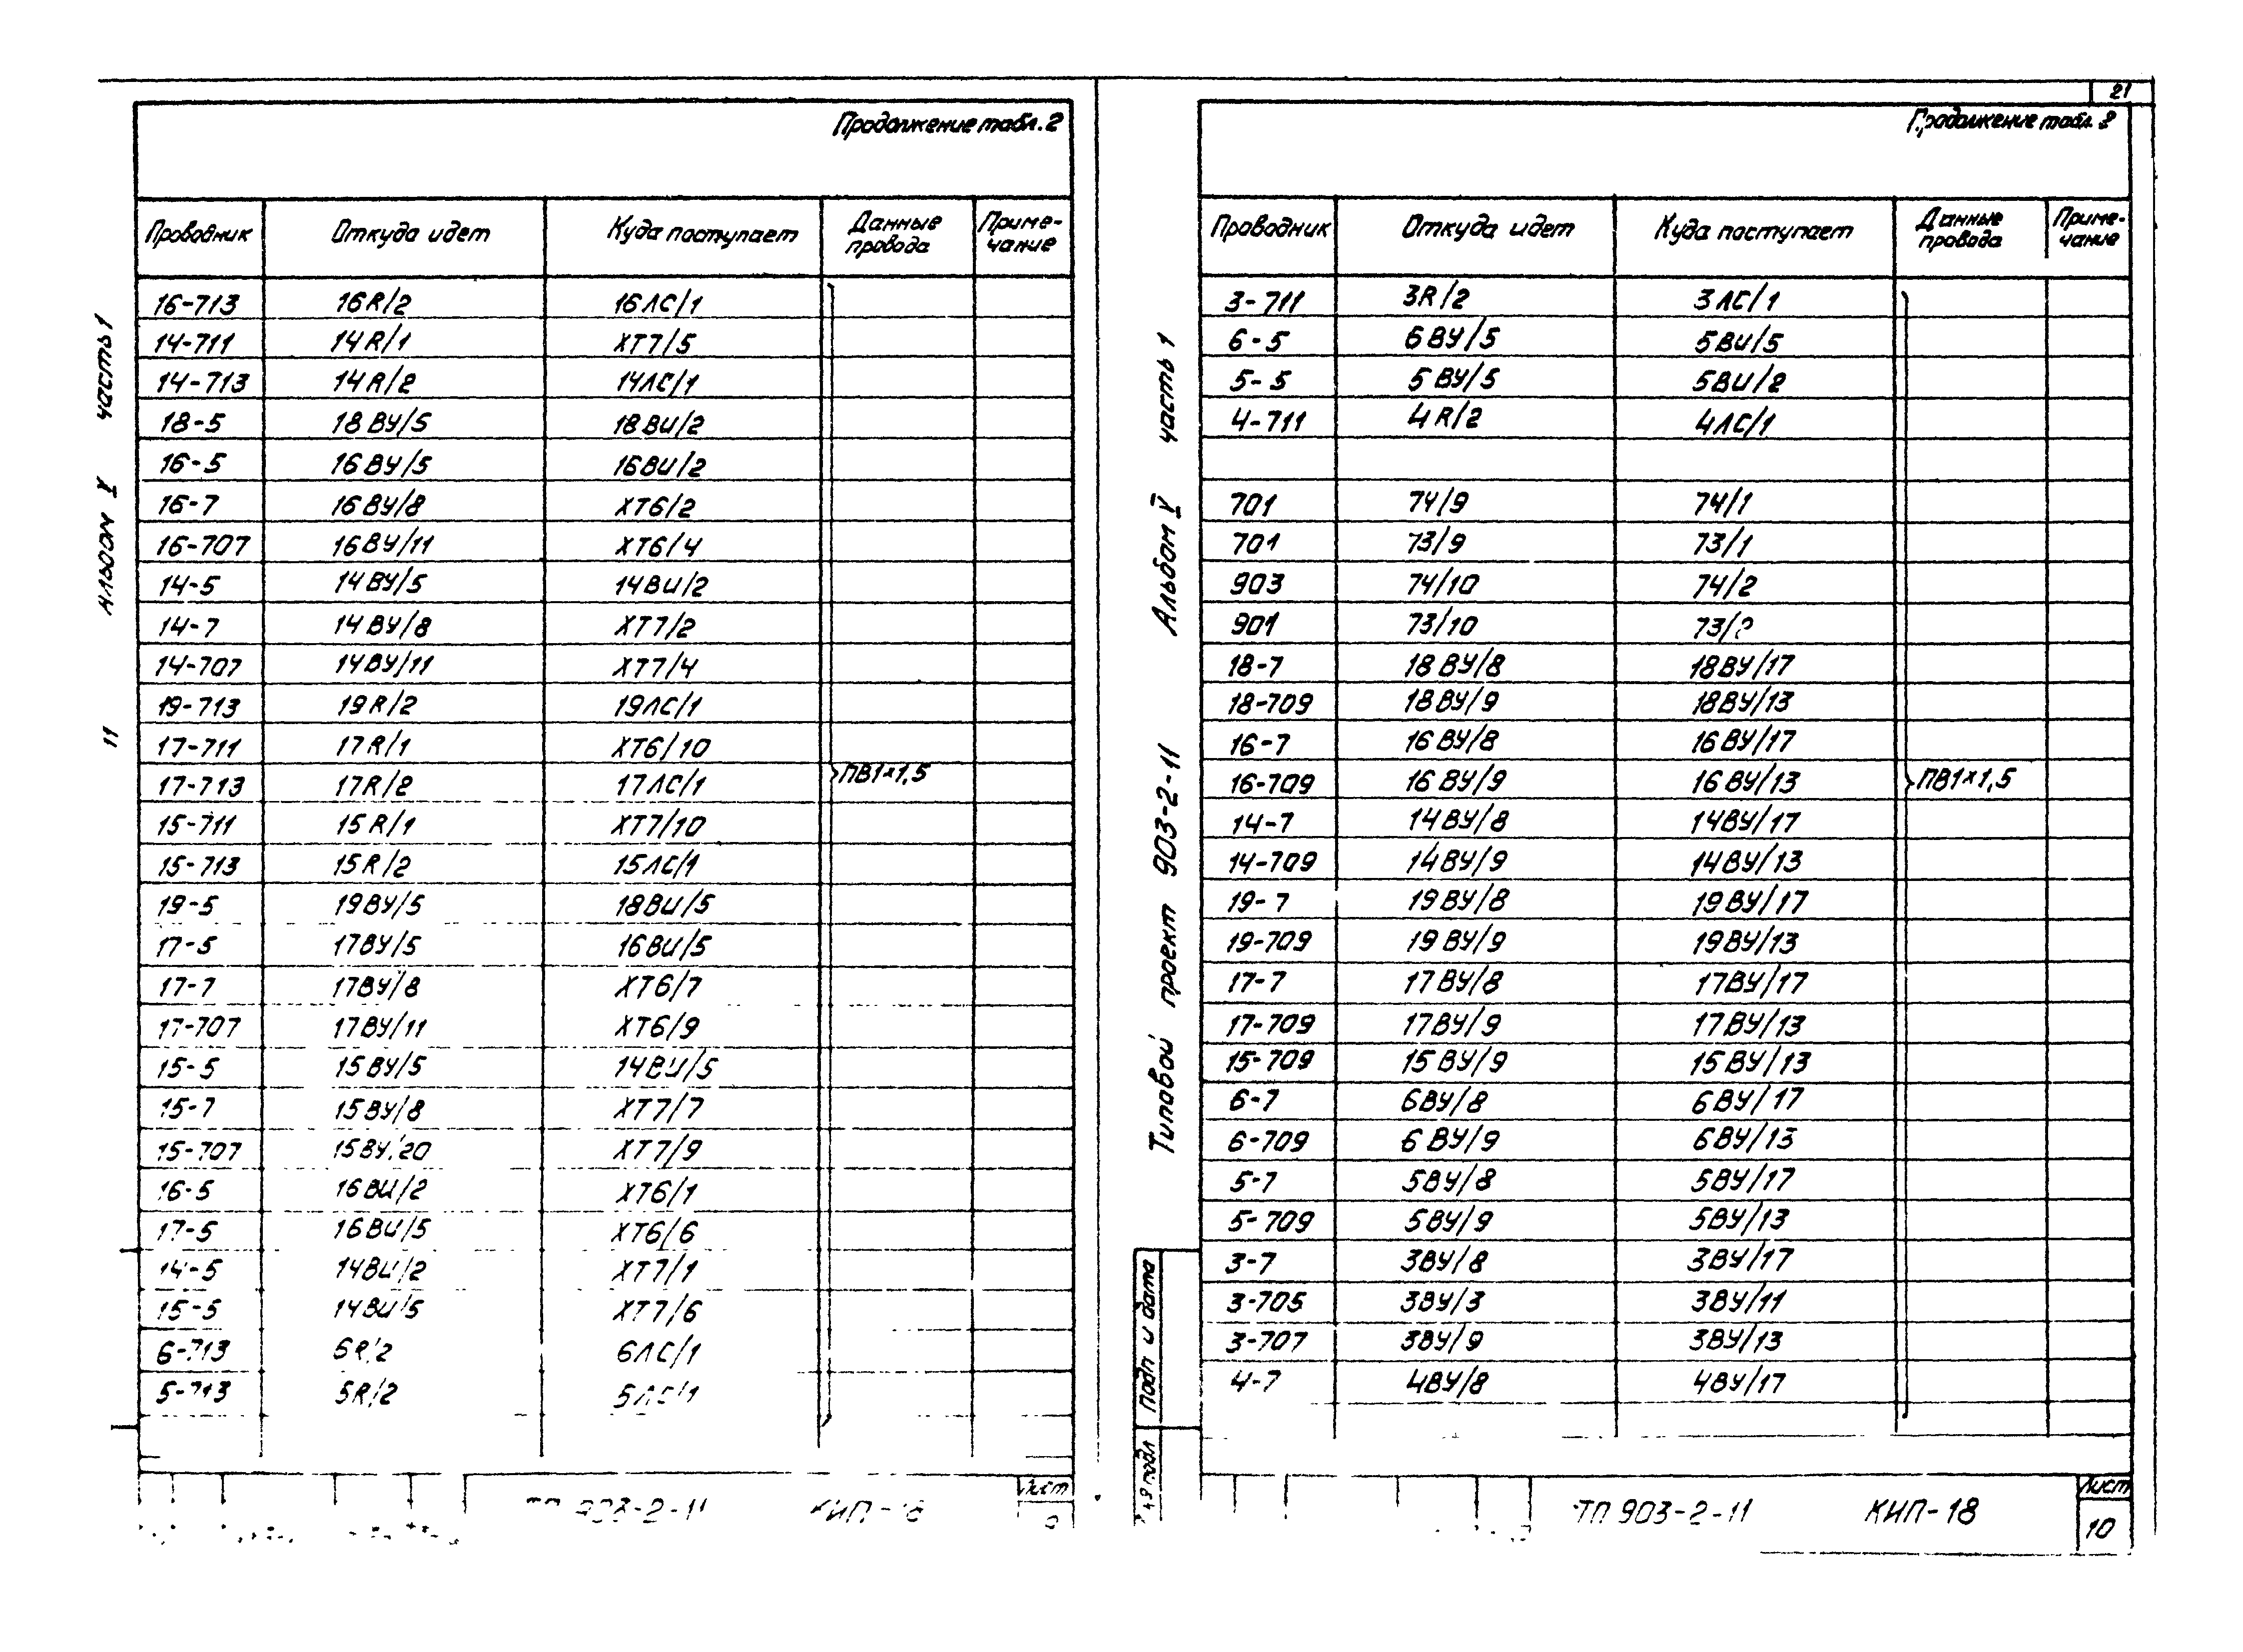 Продолжение табл. 2
Проводник Откуда идет Куда поступает Данные провода Примечание
16-713 16R/2 16ЛС/1
14-711 14R/1 ХТ7/5
14-713 14R/2 14ЛС/1
18-5 18ВУ/5 18ВИ/2
16-5 16ВУ/5 16ВИ/2
16-7 16ВУ/8 ХТ6/2
16-707 16ВУ/11 ХТ6/4
14-5 14ВУ/5 14ВИ/2
14-7 14ВУ/8 ХТ7/2
14-707 14ВУ/11 ХТ7/4
19-713 19R/2 19ЛС/1
17-711 17R/1 ХТ6/10
17-713 17R/2 17ЛС/1 ПВ1×1,5
15-711 15R/1 ХТ7/10
15-713 15R/2 15ЛС/1
19-5 19ВУ/5 18ВИ/5
17-5 17ВУ/5 16ВИ/5
17-7 17ВУ/8 ХТ6/7
17-707 17ВУ/11 ХТ6/9
15-5 15ВУ/5 14ВИ/5
15-7 15ВУ/8 ХТ7/7
15-707 15ВУ/20 ХТ7/9
16-5 16ВИ/2 ХТ6/1
17-5 16ВИ/5 ХТ6/6
14-5 14ВИ/2 ХТ7/1
15-5 14ВИ/5 ХТ7/6
6-713 6R/2 6ЛС/1
5-713 5R/2 5ЛС/1
ТП 903-2-11 КИП-18 Лист
11 Альбом V часть 1
21
Продолжение табл. 2
Проводник Откуда идет Куда поступает Данные провода Примечание
3-711 3R/2 3ЛС/1
6-5 6ВУ/5 5ВИ/5
5-5 5ВУ/5 5ВИ/2
4-711 4R/2 4ЛС/1
701 74/9 74/1
701 73/9 73/1
903 74/10 74/2
901 73/10 73/2
18-7 18ВУ/8 18ВУ/17
18-709 18ВУ/9 18ВУ/13
16-7 16ВУ/8 16ВУ/17
16-709 16ВУ/9 16ВУ/13 ПВ1×1,5
14-7 14ВУ/8 14ВУ/17
14-709 14ВУ/9 14ВУ/13
19-7 19ВУ/8 19ВУ/17
19-709 19ВУ/9 19ВУ/13
17-7 17ВУ/8 17ВУ/17
17-709 17ВУ/9 17ВУ/13
15-709 15ВУ/9 15ВУ/13
6-7 6ВУ/8 6ВУ/17
6-709 6ВУ/9 6ВУ/13
5-7 5ВУ/8 5ВУ/17
5-709 5ВУ/9 5ВУ/13
3-7 3ВУ/8 3ВУ/17
3-705 3ВУ/3 3ВУ/11
3-707 3ВУ/9 3ВУ/13
4-7 4ВУ/8 4ВУ/17
ТП 903-2-11 КИП-18 Лист
10
Типовой проект 903-2-11 Альбом V часть 1
Подп и дата
подл